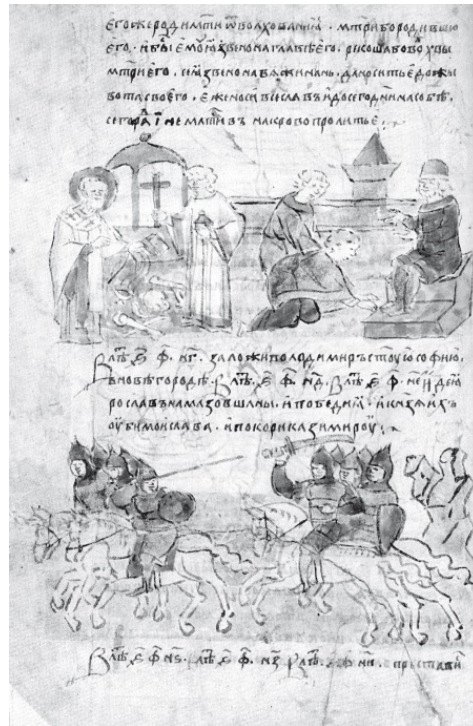 его же роди мти ѿ волхованиꙗ · мтри бо родивши
его · и бы емоу ꙗзвено на главѣ его · ркоша бо волъхвы
мтри его · ꙗзвено навѧжи нань · да носить е до жи
вота своего · еже носи всеславъ и до сего дни на собѣ ·
сего ра и не мативъ на кровопролитье ·
В лѣт ҂ѕ · ф · нг · заложи володимиръ стоую софию ·
в новѣгородѣ · В лѣт ҂ѕ · ф · нд · В лѣт ҂ѕ · ф · не иде ꙗ
рославъ на мазовшаны · и победи ꙗ · и кнѧзѧ ихъ
оуби моислава · и покори казимироу ·
В лѣт ҂ѕ · ф · нѕ · В лѣт ҂ѕ · ф · нз В лѣт · ҂ѕ ф ни · преставис